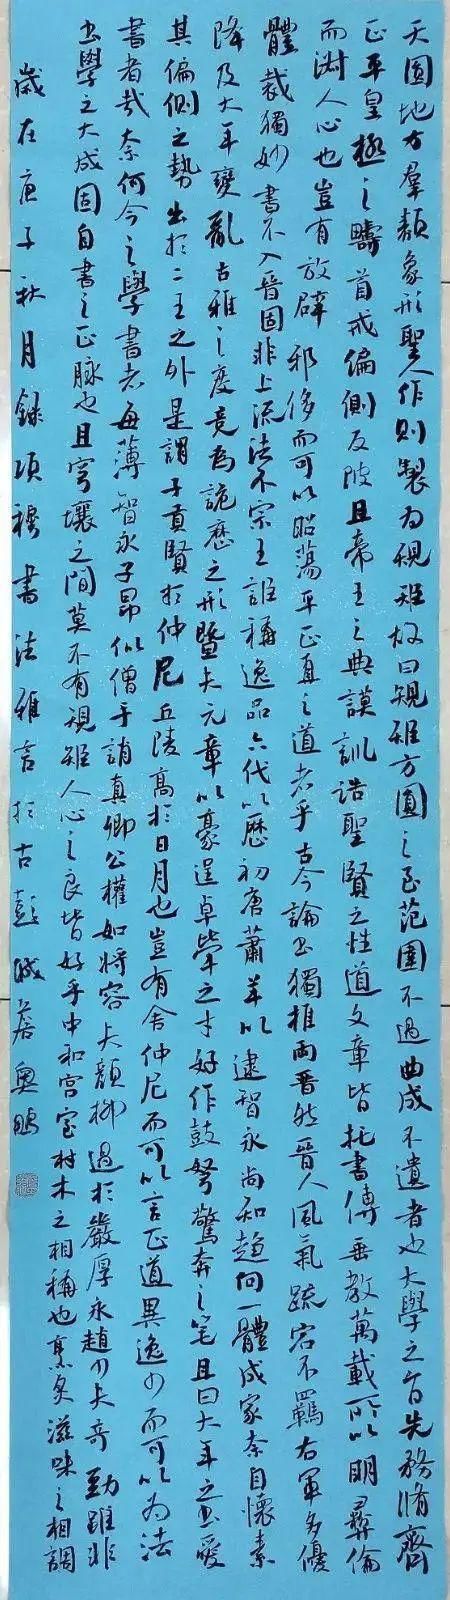 天圆地方羣類象形聖人作則製为規矩故曰規矩方圓之至范圍不過曲成不遺者也大學之旨先務脩齊
正平皇極之疇首戒偏側反陂且帝王之典謨訓誥聖賢之性道文章皆托書傳垂教萬載所以明彛倫
而淑人心也豈有放辟邪侈而可以昭蕩平正直之道者乎古今論書獨推兩晋然晋人風氣疏宕不羈右軍多優
體裁獨妙書不入晋固非上流法不宗王詎稱逸品六代以歷初唐蕭羊以逮智永尚知趋向一體成家奈自懷素
降及大年變亂古雅之度竟为詭歷之形暨夫元章以豪逞卓犖之才好作鼓弩驚奔之笔且曰大年之書愛
其偏側之勢出於二王之外是謂子貢賢於仲尼丘陵高於日月也豈有舍仲尼而可以言正道異逸少而可以为法
書者哉奈何今之學書者每薄智永子昂似僧手誚真卿公權如將容夫顔柳過於嚴厚永趙少夫奇勁雖非
書學之大成固自書之正脉也且穹壤之間莫不有規矩人心之良皆好乎中和宫室材木之相稱也烹炙滋味之相調
歲在庚子秋月録項穆書法雅言於古彭城